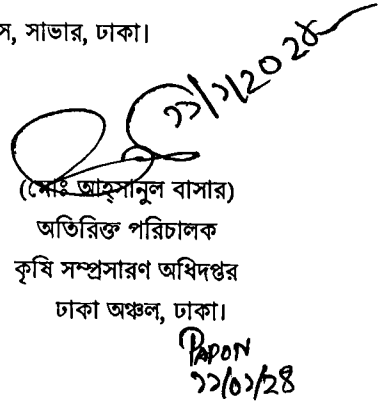 স, সাভার, ঢাকা।
১১/১/২০২৪
(মোঃ আহ্সানুল বাসার)
অতিরিক্ত পরিচালক
কৃষি সম্প্রসারণ অধিদপ্তর
ঢাকা অঞ্চল, ঢাকা।
PAPON
১১/০১/২৪